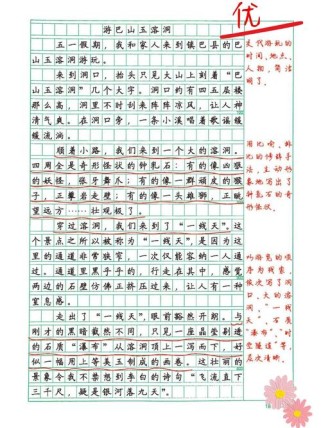 优
游巴山玉溶洞
五一假期，我和家人来到镇巴县的巴
山玉溶洞游玩。
来到洞口，抬头只见大山上刻着“巴
山玉溶洞”几个大字。洞口约有四五层楼
那么高，洞里不时刮来阵阵凉风，让人神
清气爽。在洞口旁，一条小溪唱着歌谣缓
缓流淌。
顺着小路，我们来到一个大的溶洞。
四周全是奇形怪状的钟乳石：有的像凶恶
的妖怪，张牙舞爪；有的像一群顽皮的猴
子，正攀岩走壁；有的像一头雄狮，正眺
望远方……壮观极了。
穿过溶洞，我们来到了“一线天”。这
个景点之所以被称为“一线天”，是因为这
里的通道非常狭窄，一次仅能容纳一人通
过。通道里黑乎乎的，行走在其中，感觉
两边的石壁仿佛正挤压过来，让人有一种
窒息感。
走出了“一线天”，眼前豁然开朗，与
刚才的黑暗截然不同，只见一座晶莹剔透
的石质“瀑布”从溶洞顶上一泻而下，好
似一幅用上等美玉制成的画卷。这壮丽的
景象令我不禁想到李白的诗句“飞流直下
三千尺，疑是银河落九天”。
交代游玩的
时间、地点、
人物，简洁
明了。
用比喻、排
比的修辞手
法，生动形
象地写出了
钟乳石的奇
形怪状。
以游览的顺
序为线索，
依次写了洞
口、大的溶洞、
“一线天”、石质
“瀑布”、“时
空隧道”等，
层次清晰。